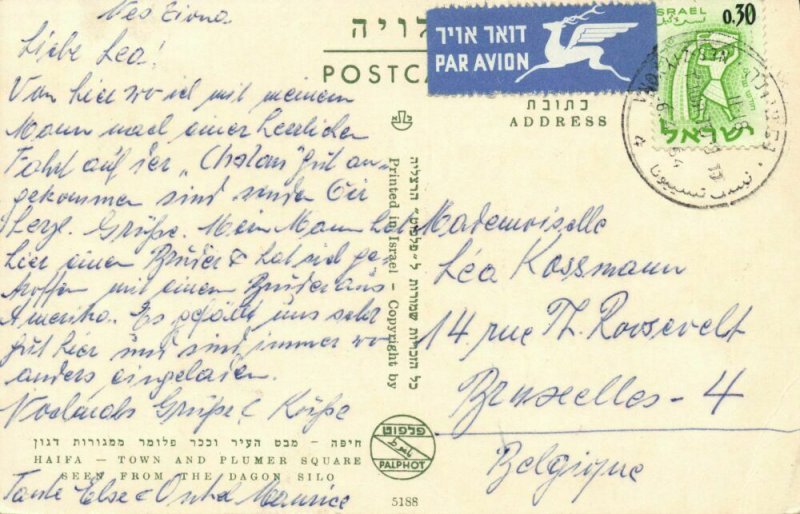 Nes Ziona
Liebe Lea!
Von hier wo ich mit meinem
Mann nach einer herrlichen
Fahrt auf der „Cholam" gut an-
gekommen sind senden Dir
herzl. Grüße. Mein Mann hat
hier einen Bruder & hat sich ge-
troffen mit einem Bruder aus
Amerika. Es gefällt uns sehr
gut hier und sind immer wo
anders eingeladen.
Nochmals Grüße & Küße
Tante Else & Onkel Maurice
גלויה
POSTCA
דואר אויר
PAR AVION
כתובת
ADDRESS
ISRAEL
0.30
ישראל
Mademoiselle
Léa Kossmann
14 rue Th. Roosevelt
Bruxelles - 4
Belgique
Printed in Israel - Copyright by
כל הזכויות שמורות ל„פלפוט" הרצליה
פלפוט
PALPHOT
חיפה - מבט העיר וככר פלומר ממגורות דגון
HAIFA - TOWN AND PLUMER SQUARE
SEEN FROM THE DAGON SILO
5188